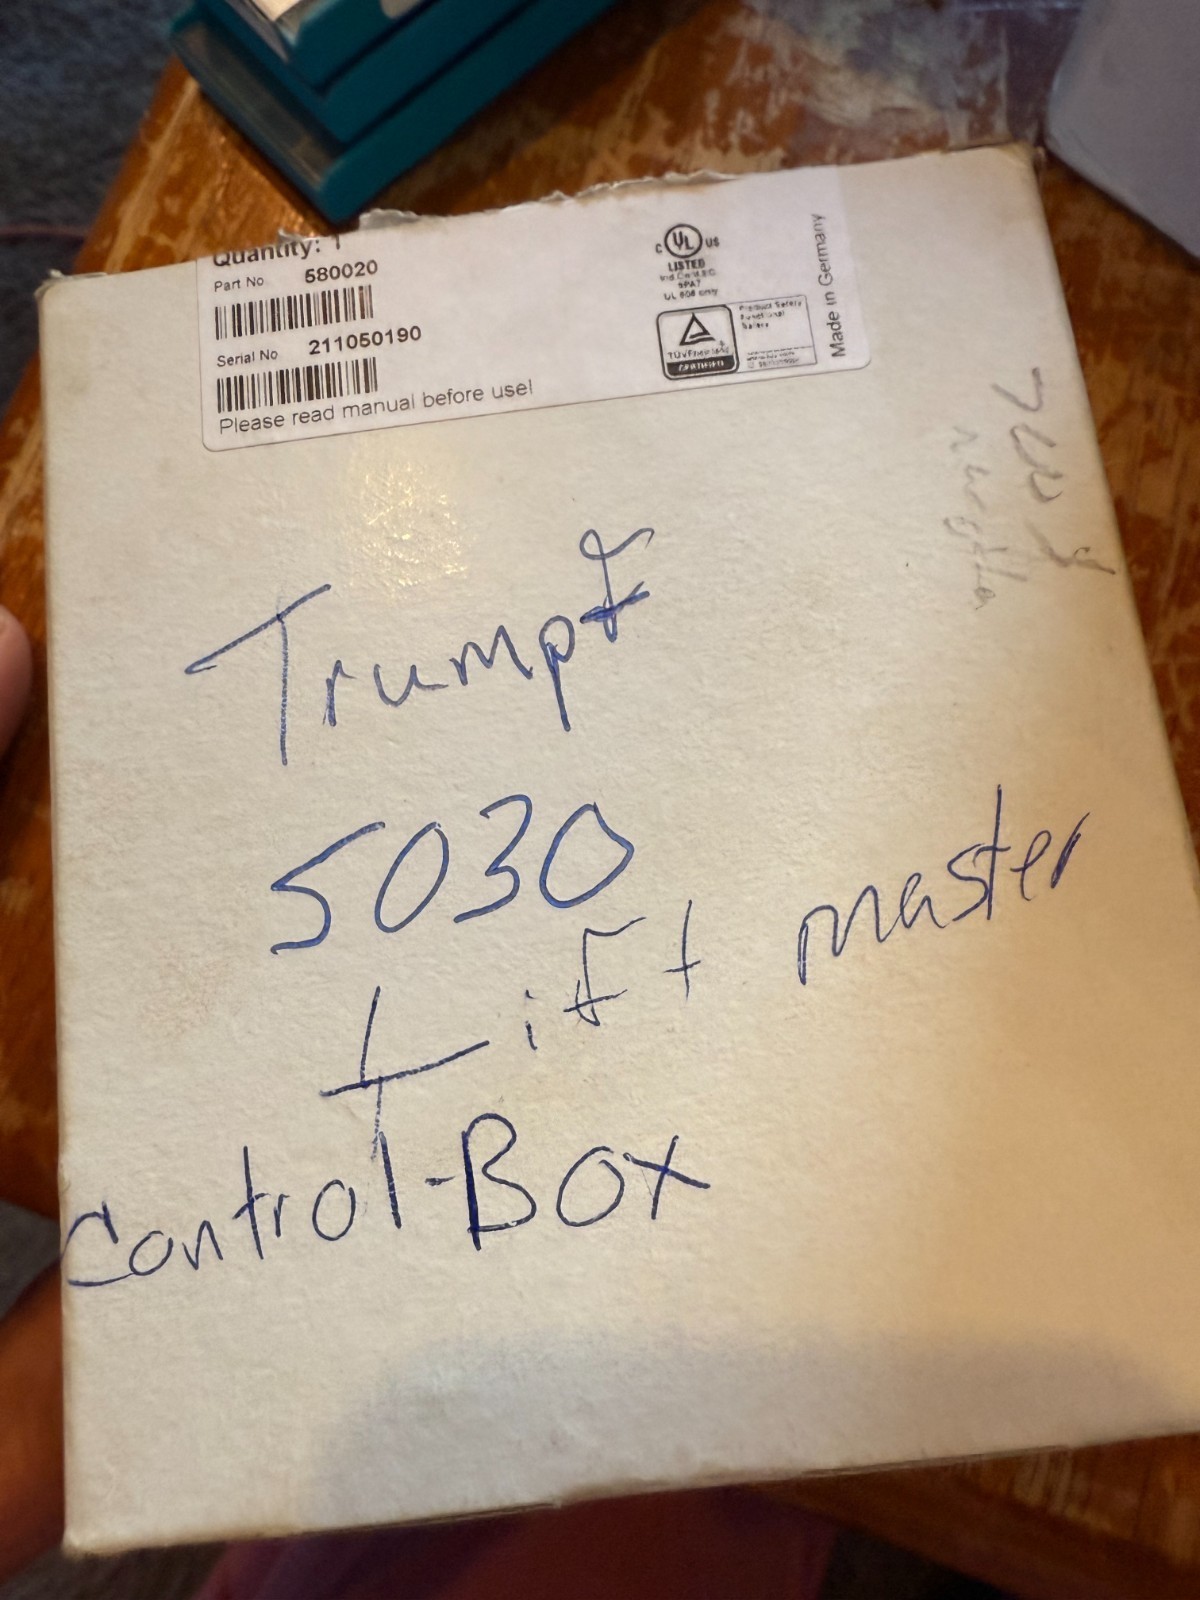 Quantity: 1
Part No 580020
Serial No 211050190
Please read manual before use!
C UL US
LISTED
UL 508 only
TÜVRheinland
CERTIFIED
Product Safety
Functional
Safety
Made in Germany
Trumpf
5030
Lift master
Control-Box